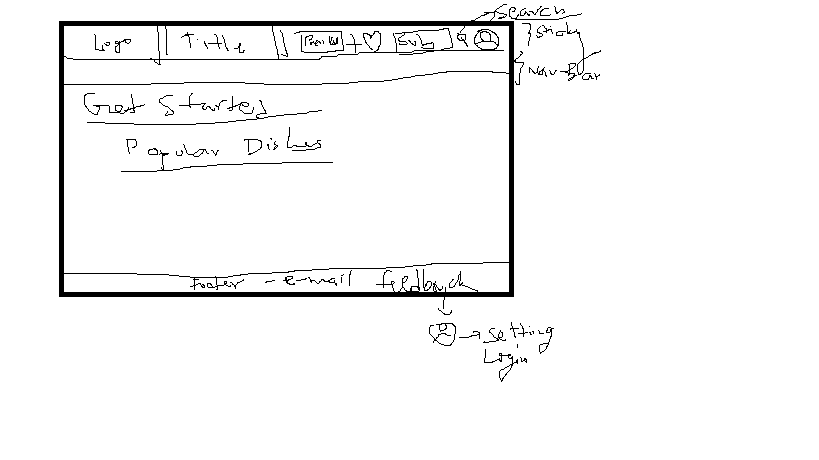 search
Logo Title Sub
} sticky
} Nav-Bar
Get Started
Popular Dishes
Footer - e-mail feedback
→ setting
Login